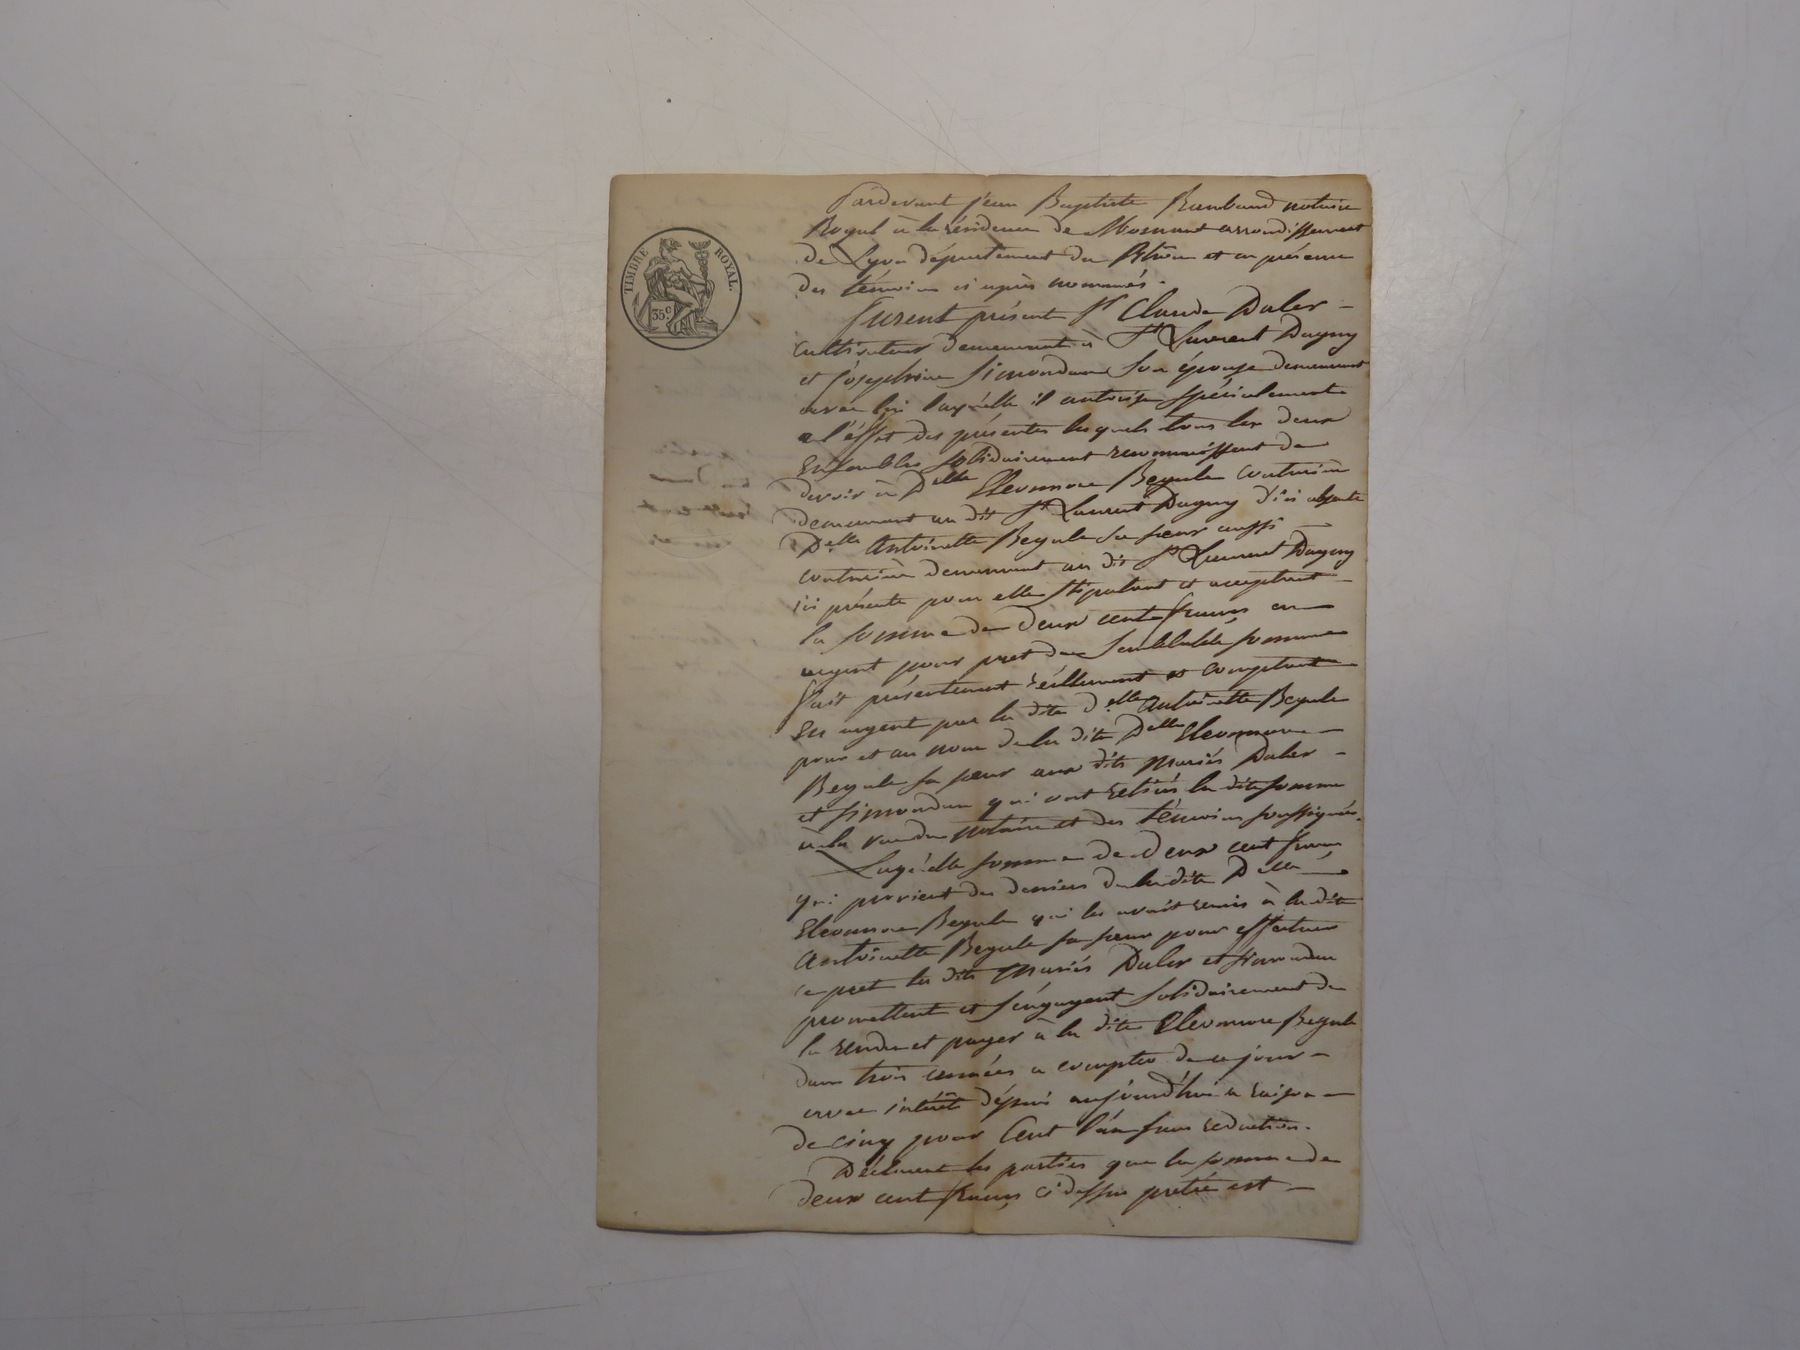 TIMBRE ROYAL.
35 c.
Pardevant jean Baptiste notaire
Royal à la résidence de Mornant arrondissement
de Lyon département du Rhône et en présence
des témoins ci après nommés.
furent présent Sr Claude Daler
cultivateur demeurant à St Laurent Dagny
et josephine Simondan son épouse demeurant
avec lui laqu'elle il autorise spécialement
a l'éffet des présentes lesquels tous les deux
Ensembles solidairement reconnoissent de
devoir à Delle Eleonnore Begule couturière
demeurant au dit St Laurent Dagny d'ici absente
Delle Antoinette Begule sa sœur aussi
couturière demeurant au dit St Laurent Dagny
ici présente pour elle stipulant et acceptant
la somme de deux cent francs en
argent pour pret de semblable somme
fait présentement réellement et comptant
En argent par la dite Delle Antoinette Begule
pour et au nom de la dite Delle Eleonnore
Begule sa sœur aux dits mariés Daler
et Simondan qui ont retirés la dite somme
à la vue du notaire et des témoins soussignés.
Laqu'elle somme de deux cent francs
qui provient des deniers de la dite Delle
Eleonnore Begule qui les avait remis à la dite
Antoinette Begule sa sœur pour effectuer
ce pret les dits mariés Daler et Simondan
promettent et s'engagent solidairement de
la rendre et payer à la dite Eleonnore Begule
dans trois années a compter de ce jour
avec intérêts dépuis aujourd'hui a raison
de cinq pour Cent l'an sans reduction.
Déclarent les parties que la somme de
deux cent francs ci dessus pretée est